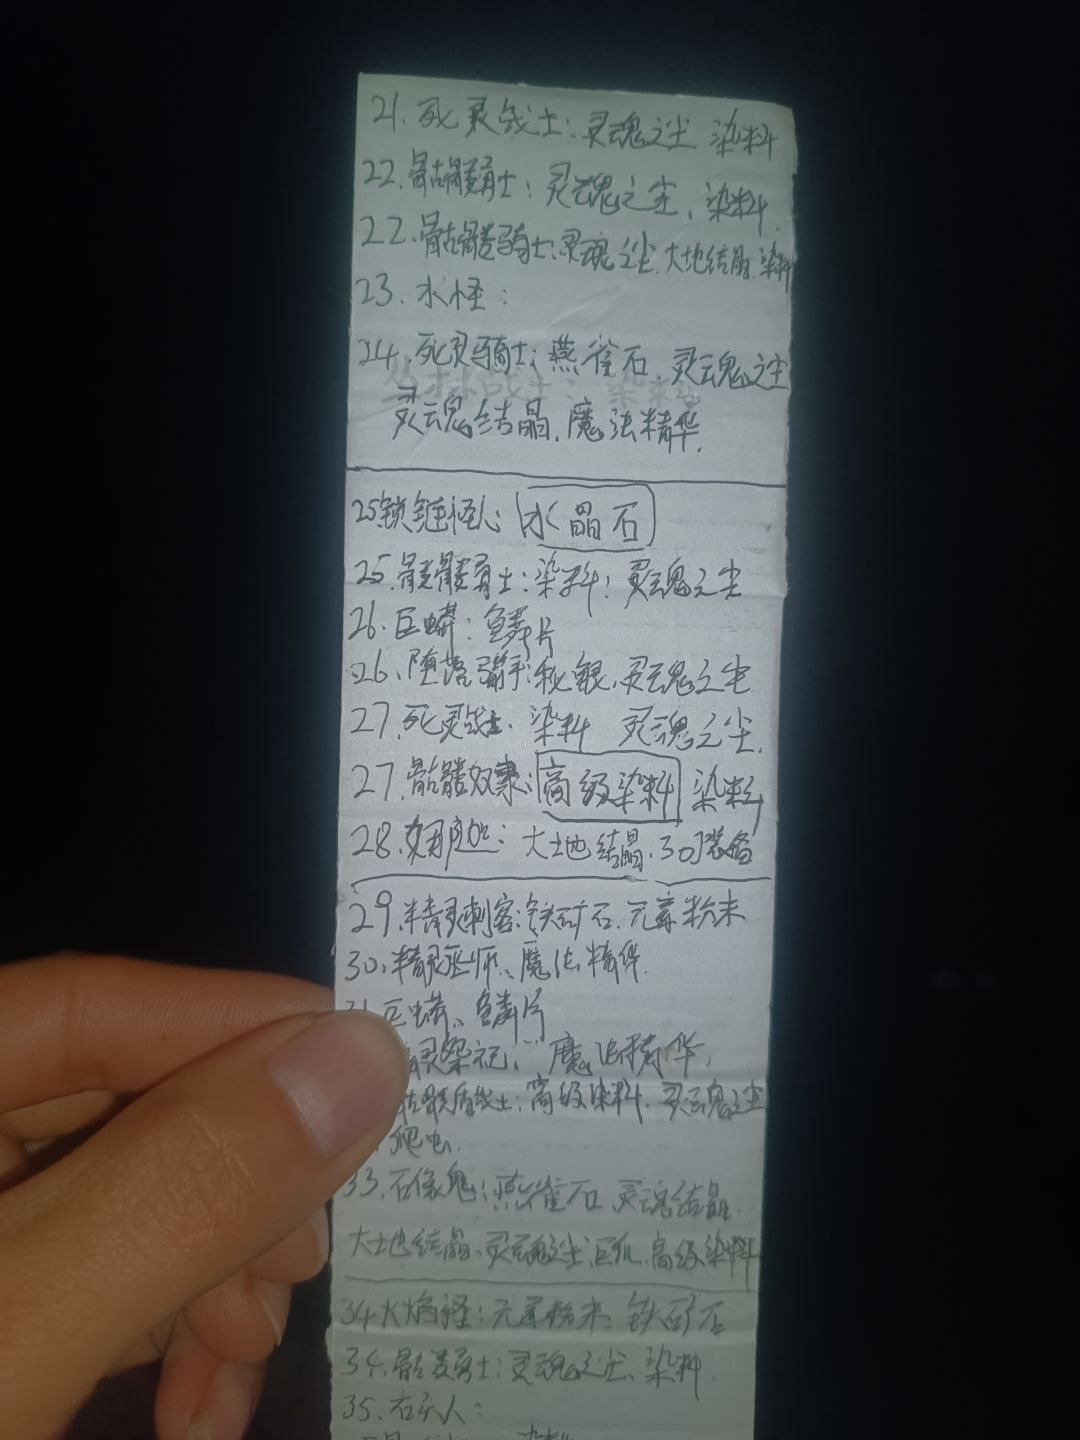 21.死灵战士:灵魂之尘 染料
22.骷髅勇士:灵魂之尘、染料.
22.骷髅骑士:灵魂之尘.大地结晶.染料
23.水怪:
24.死灵骑士:燕雀石.灵魂之尘
丛林战士:染料
灵魂结晶.魔法精华.
25锁链怪人:水晶石
25.骷髅勇士:染料:灵魂之尘
26.巨蟒:鳞片
26、堕落弩手:秘银.灵魂之尘
27.死灵战士、染料 灵魂之尘.
27.骷髅奴隶:高级染料 染料
28.娜迦:大地结晶.30门装备
29.精灵刺客:铁矿石.元素粉末
30.精灵巫师、魔法精华.
巨蟒、鳞片
灵祭祀、魔法精华.
髅盾战士:高级染料.灵魂之尘
爬虫.
33.石像鬼:燕雀石.灵魂结晶.
大地结晶、灵魂之尘、高级染料
34火焰怪:元素粉末 铁矿石
34.骷髅勇士:灵魂之尘、染料.
35.石头人:
染料